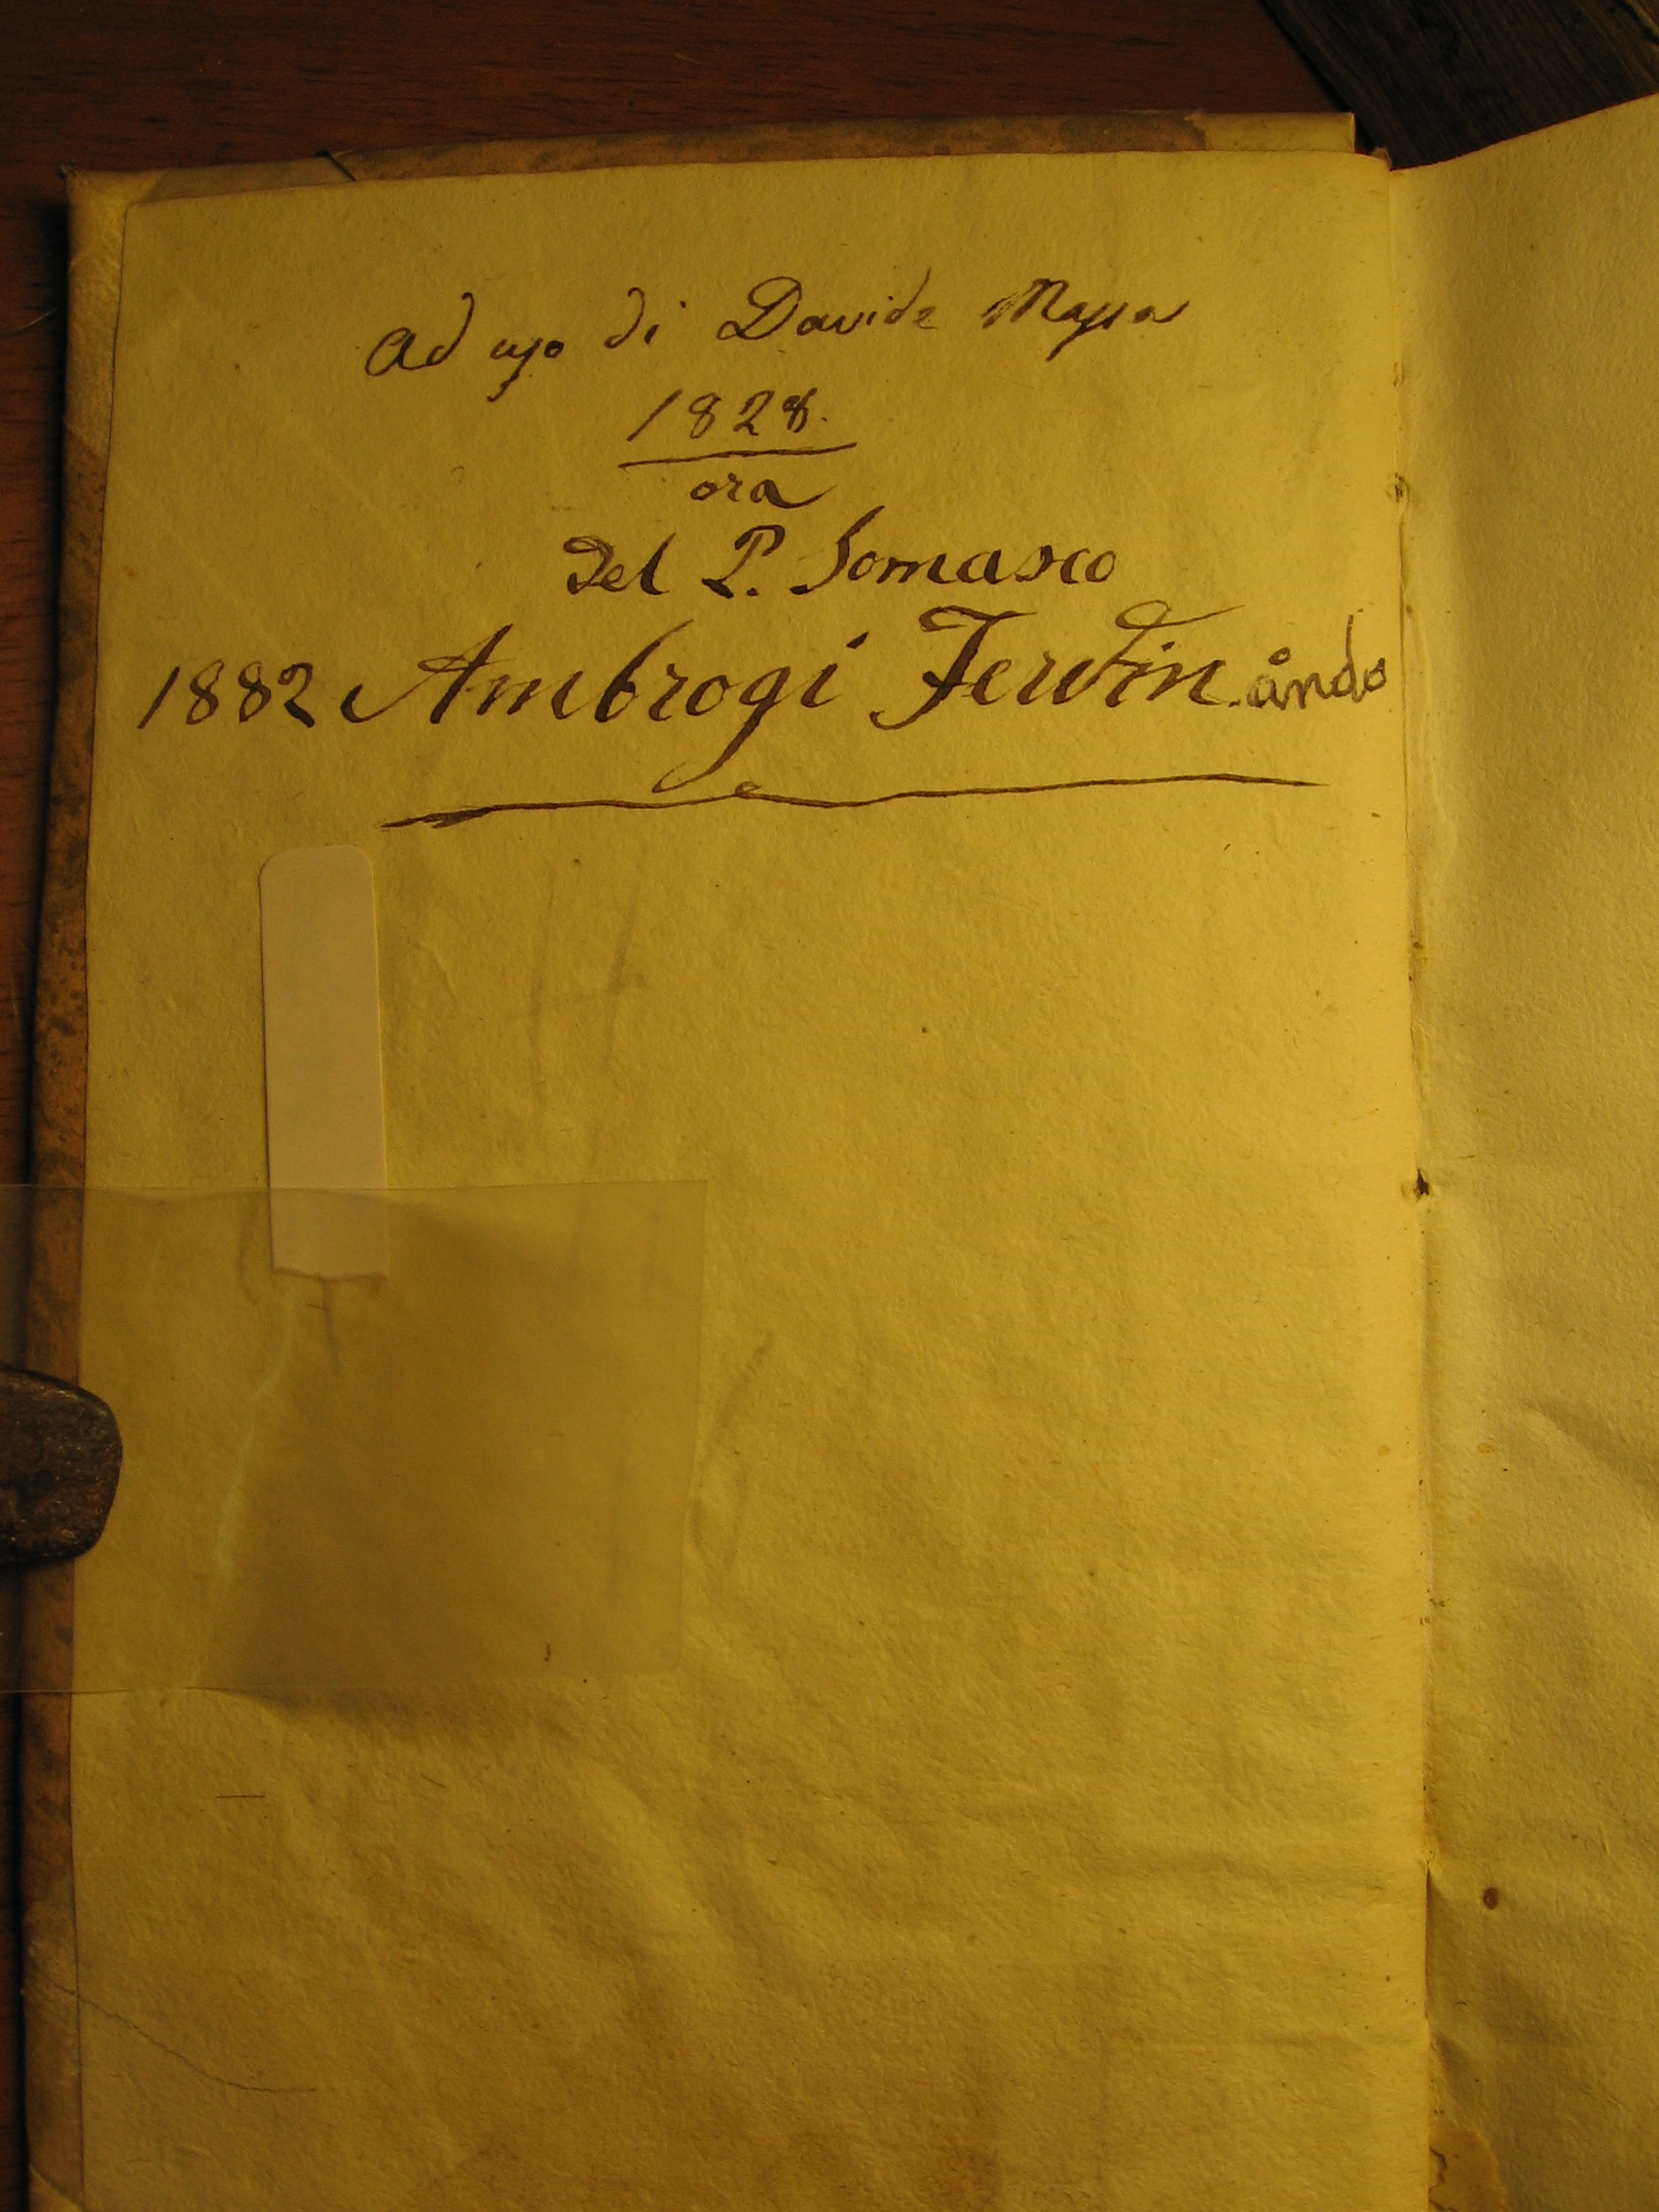 Ad uso di Davide Massa
1828.
ora
Del P. Somasco
1882 Ambrogi Ferdinando